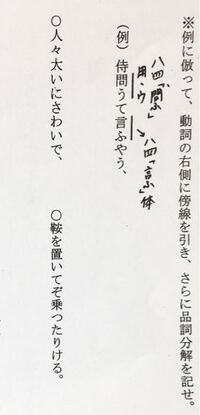 ※例に倣って、動詞の右側に傍線を引き、さらに品詞分解を記せ。
ハ四「問ふ」
用・ウ
ハ四「言ふ」体
(例)侍問うて言ふやう、
〇人々太いにさわいで、
〇鞍を置いてぞ乗つたりける。